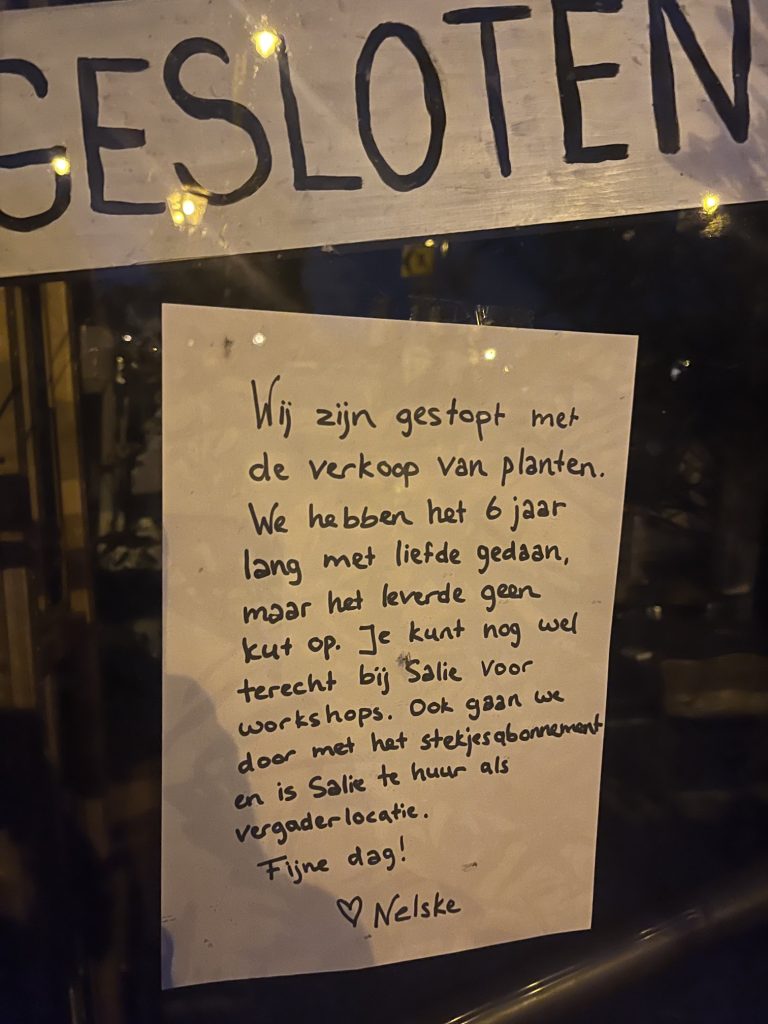 GESLOTEN
Wij zijn gestopt met
de verkoop van planten.
We hebben het 6 jaar
lang met liefde gedaan,
maar het leverde geen
kut op. Je kunt nog wel
terecht bij Salie voor
workshops. Ook gaan we
door met het stekjesabonnement
en is Salie te huur als
vergaderlocatie.
Fijne dag!
♡ Nelske